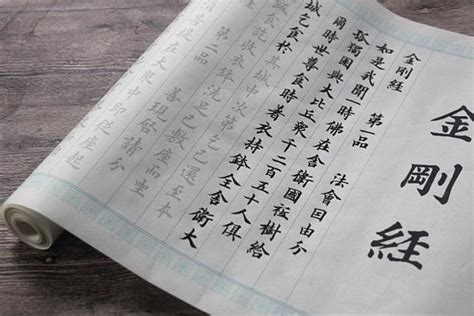 金剛経
金剛経 第一品 法會因由分
如是我聞一時佛在舍衛國祗樹給
孤獨園與大比丘衆千二百五十人俱
爾時世尊食時着衣持鉢入舍衛大
城乞食於其城中次第乞已還至本
飯食訖收衣鉢洗足已敷座而坐
第二品 善現啓請分
菩提在大衆中即從座起